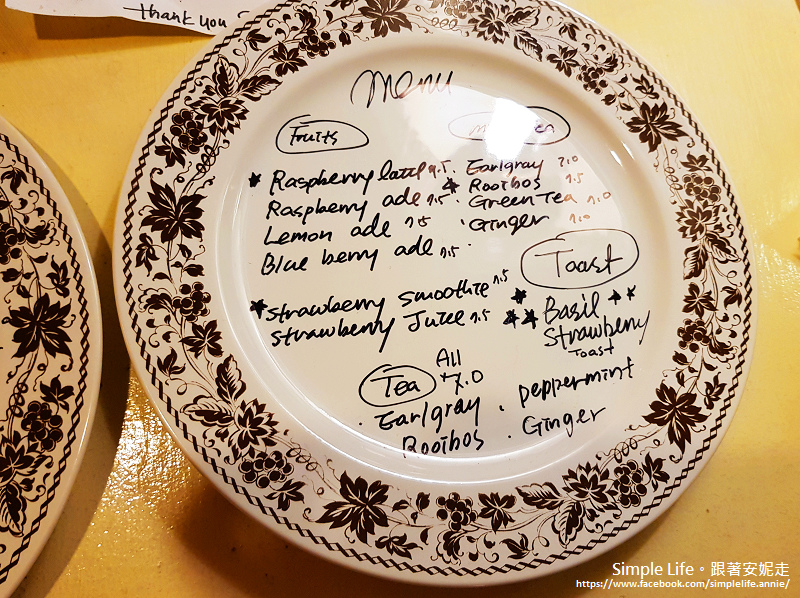 Thank you
Menu
Fruits
Raspberry latte 7.5
Raspberry ade 7.5
Lemon ade 7.5
Blue berry ade 7.5
Strawberry smoothie 7.5
Strawberry Juice 7.5
Earlgray 7.0
Rooibos 7.5
Green Tea 7.0
Ginger 7.0
Toast
Basil
Strawberry
Toast
Tea
All
7.0
Earlgray
Rooibos
peppermint
Ginger
Simple Life。跟著安妮走
https://www.facebook.com/simplelife.annie/